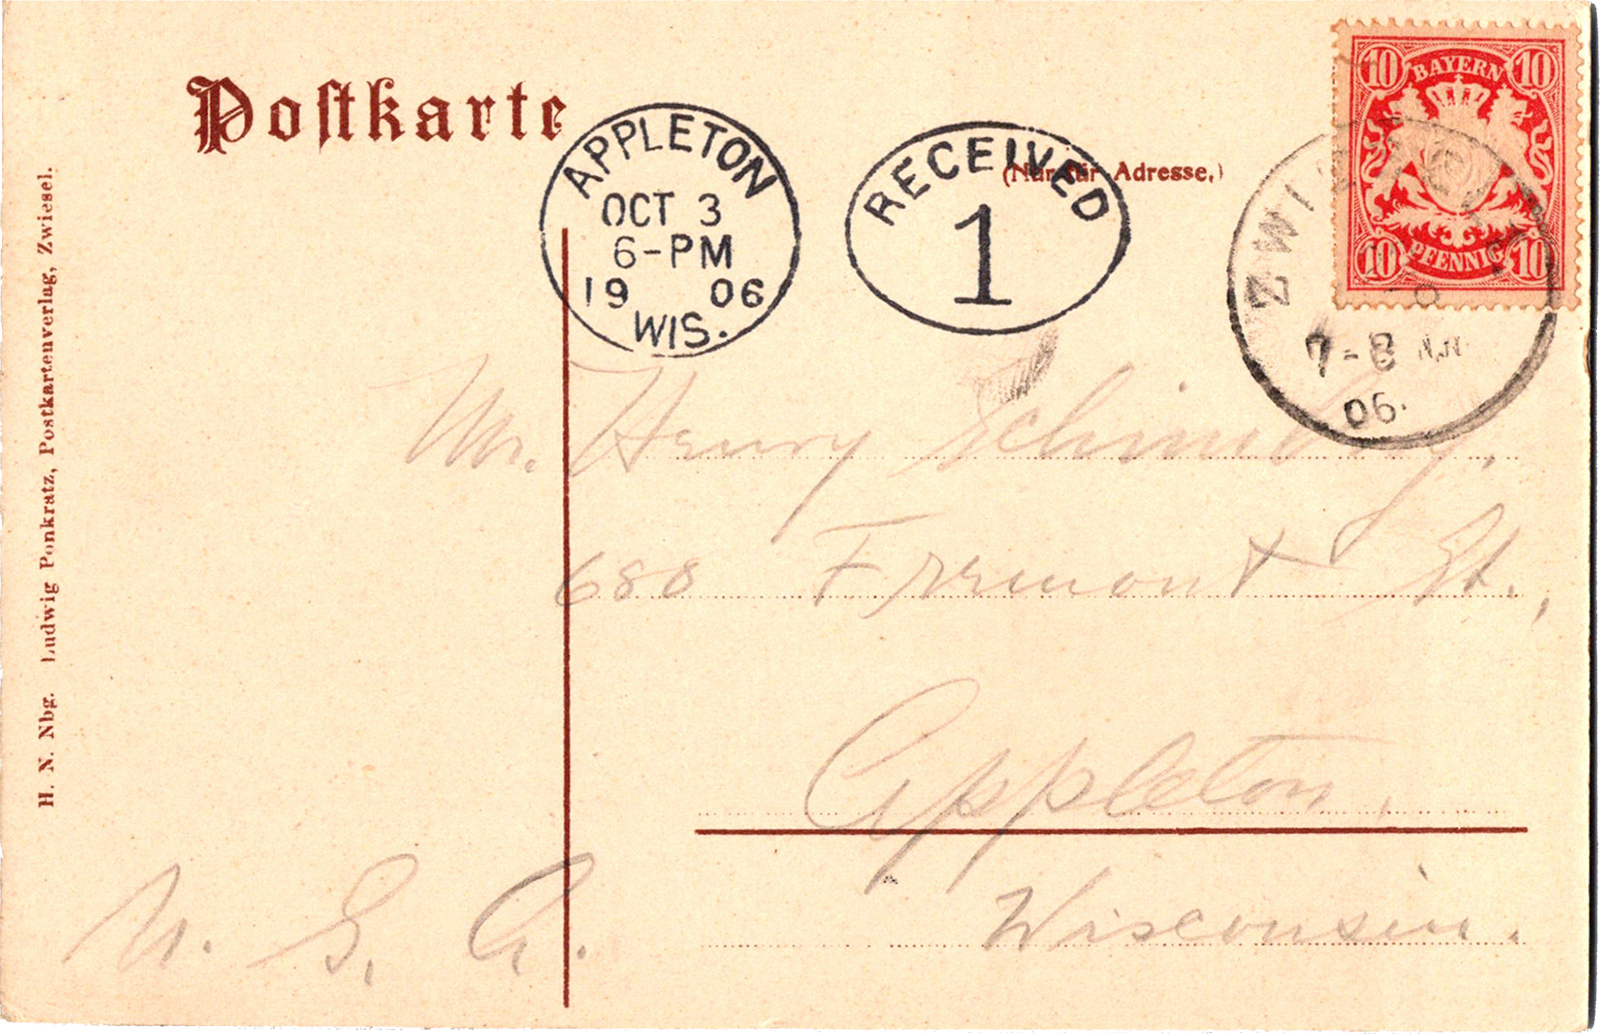 Postkarte
(Nur für Adresse.)
APPLETON
OCT 3
6-PM
19 06
WIS.
RECEIVED
1
BAYERN
10 10
10 10
PFENNIG
ZWIESEL
7-8
06.
Mr. Henry
688 Fremont St.,
Appleton.
Wisconsin.
U. S. A.
H. N. Nbg. Ludwig Ponkratz, Postkartenverlag, Zwiesel.